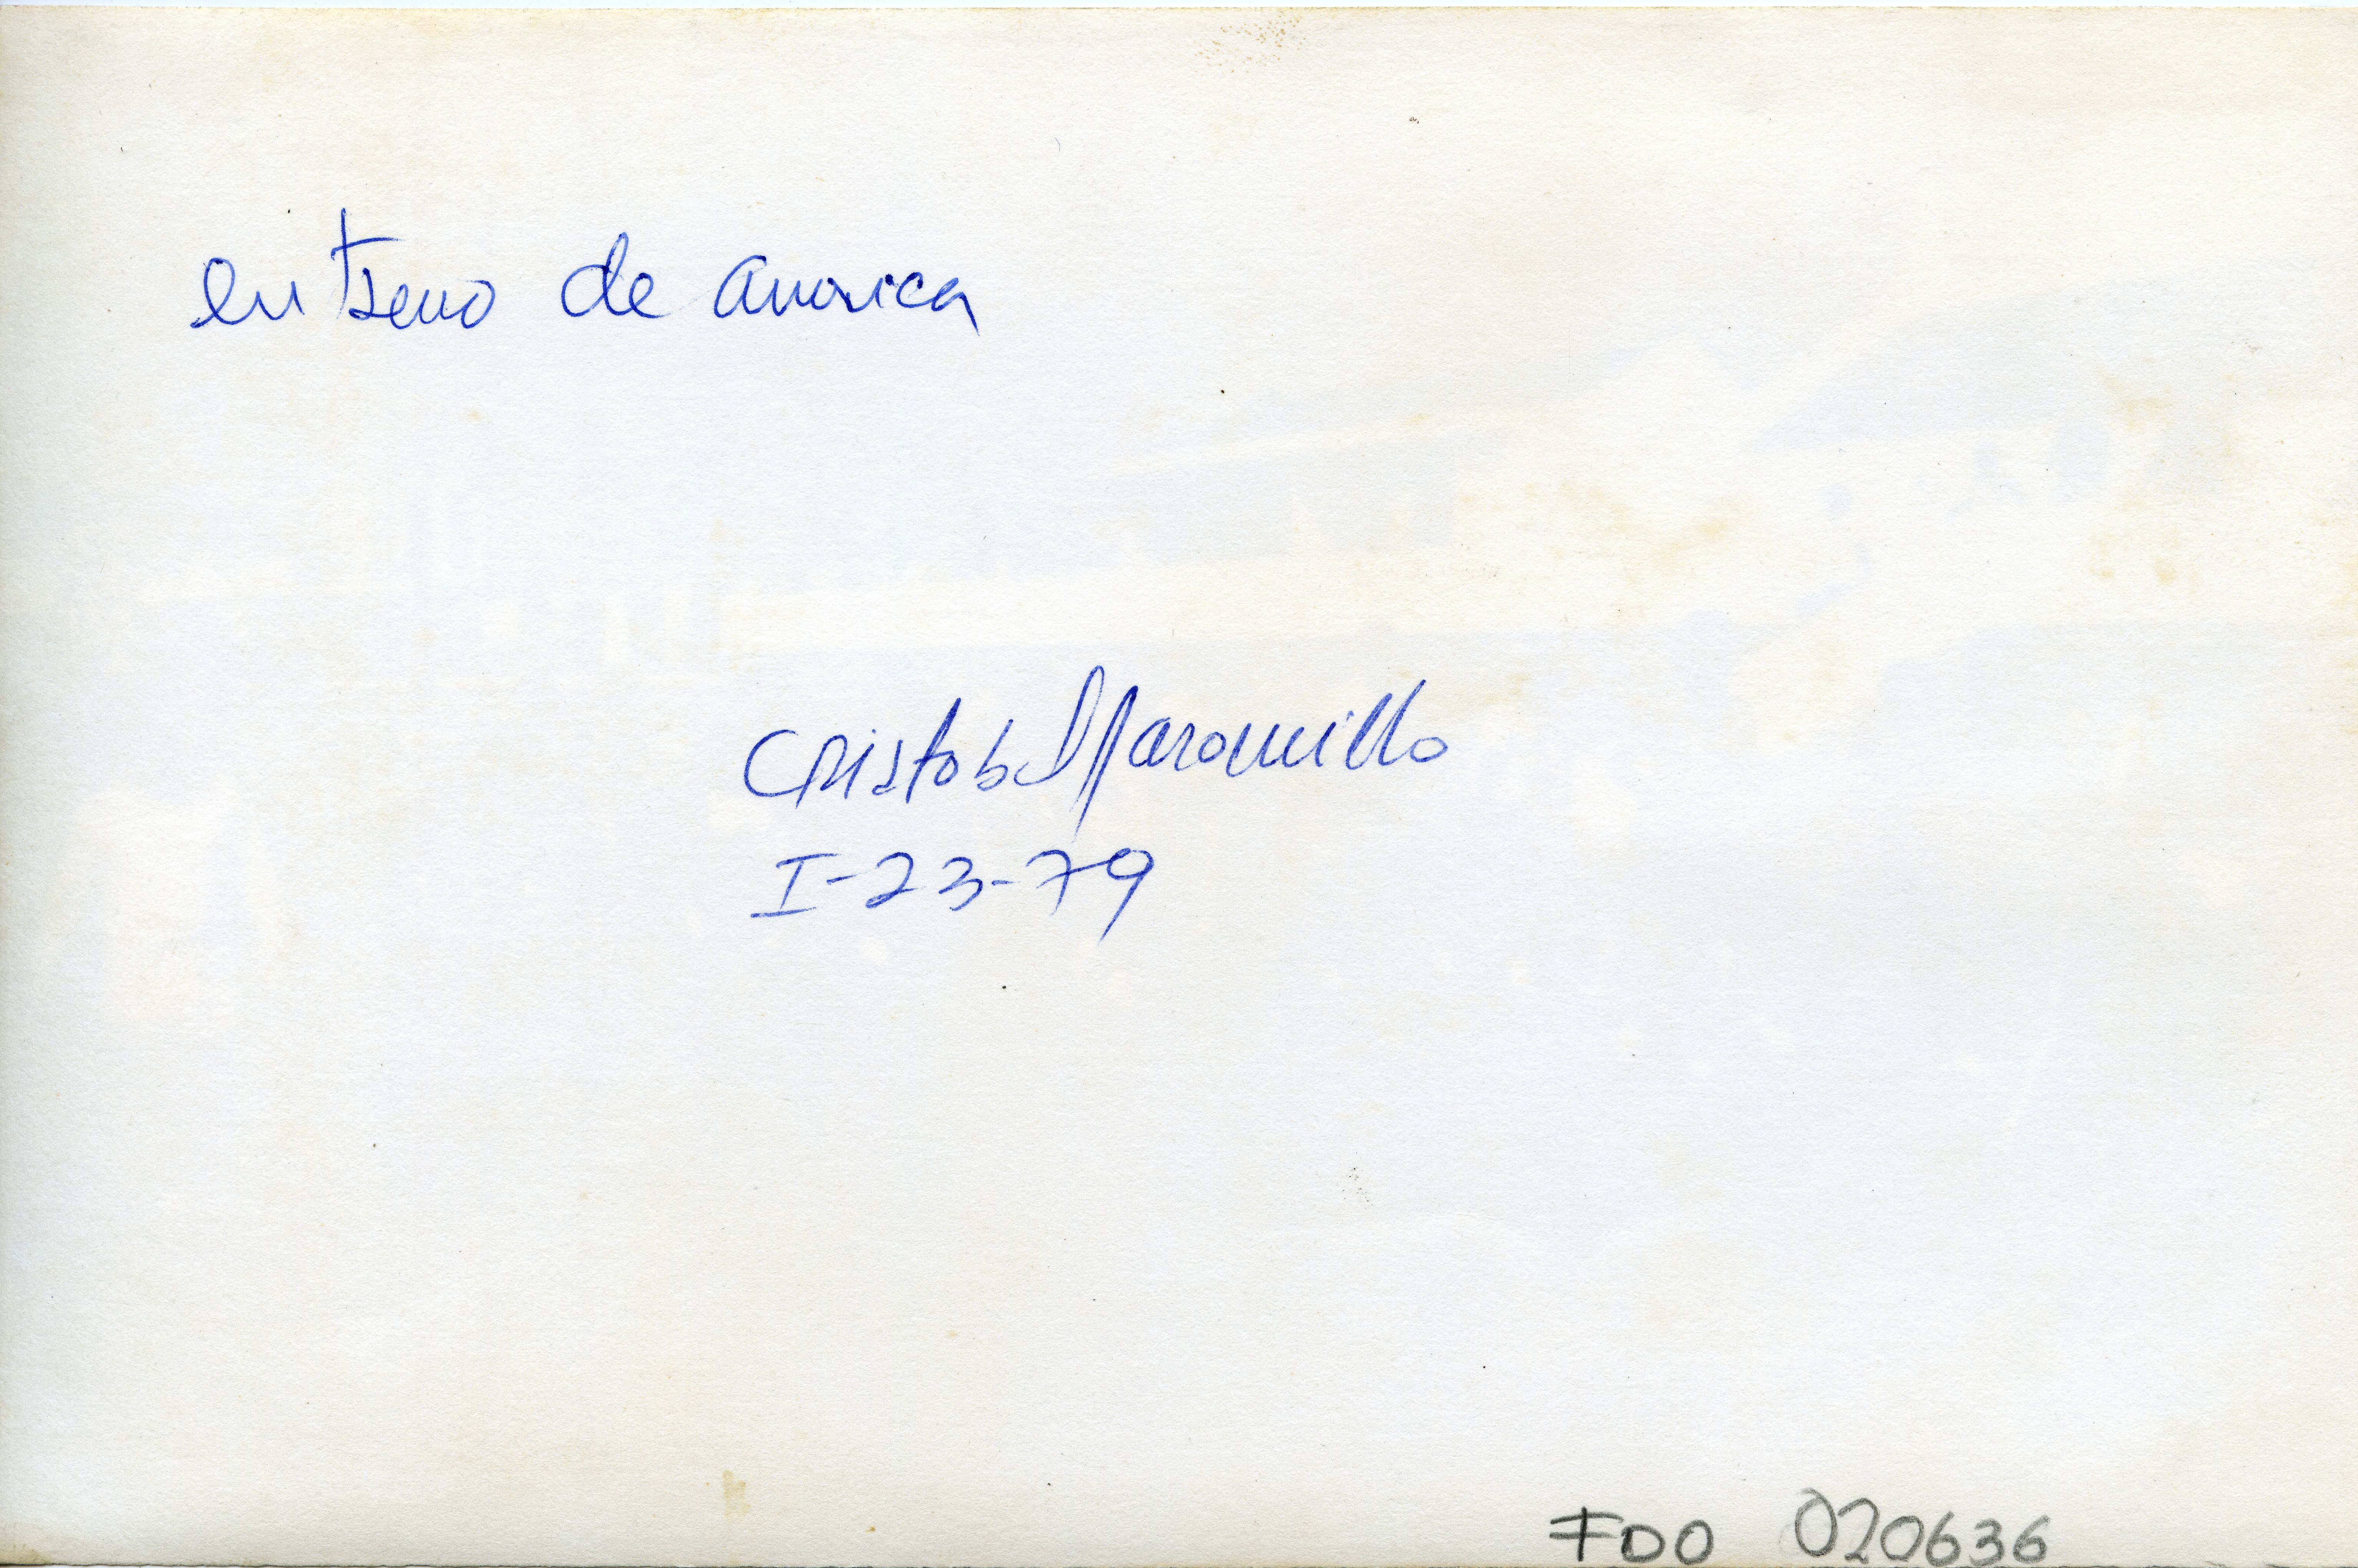 entreno de america
Cristobal Jaramillo
I-23-79
FDO 020636